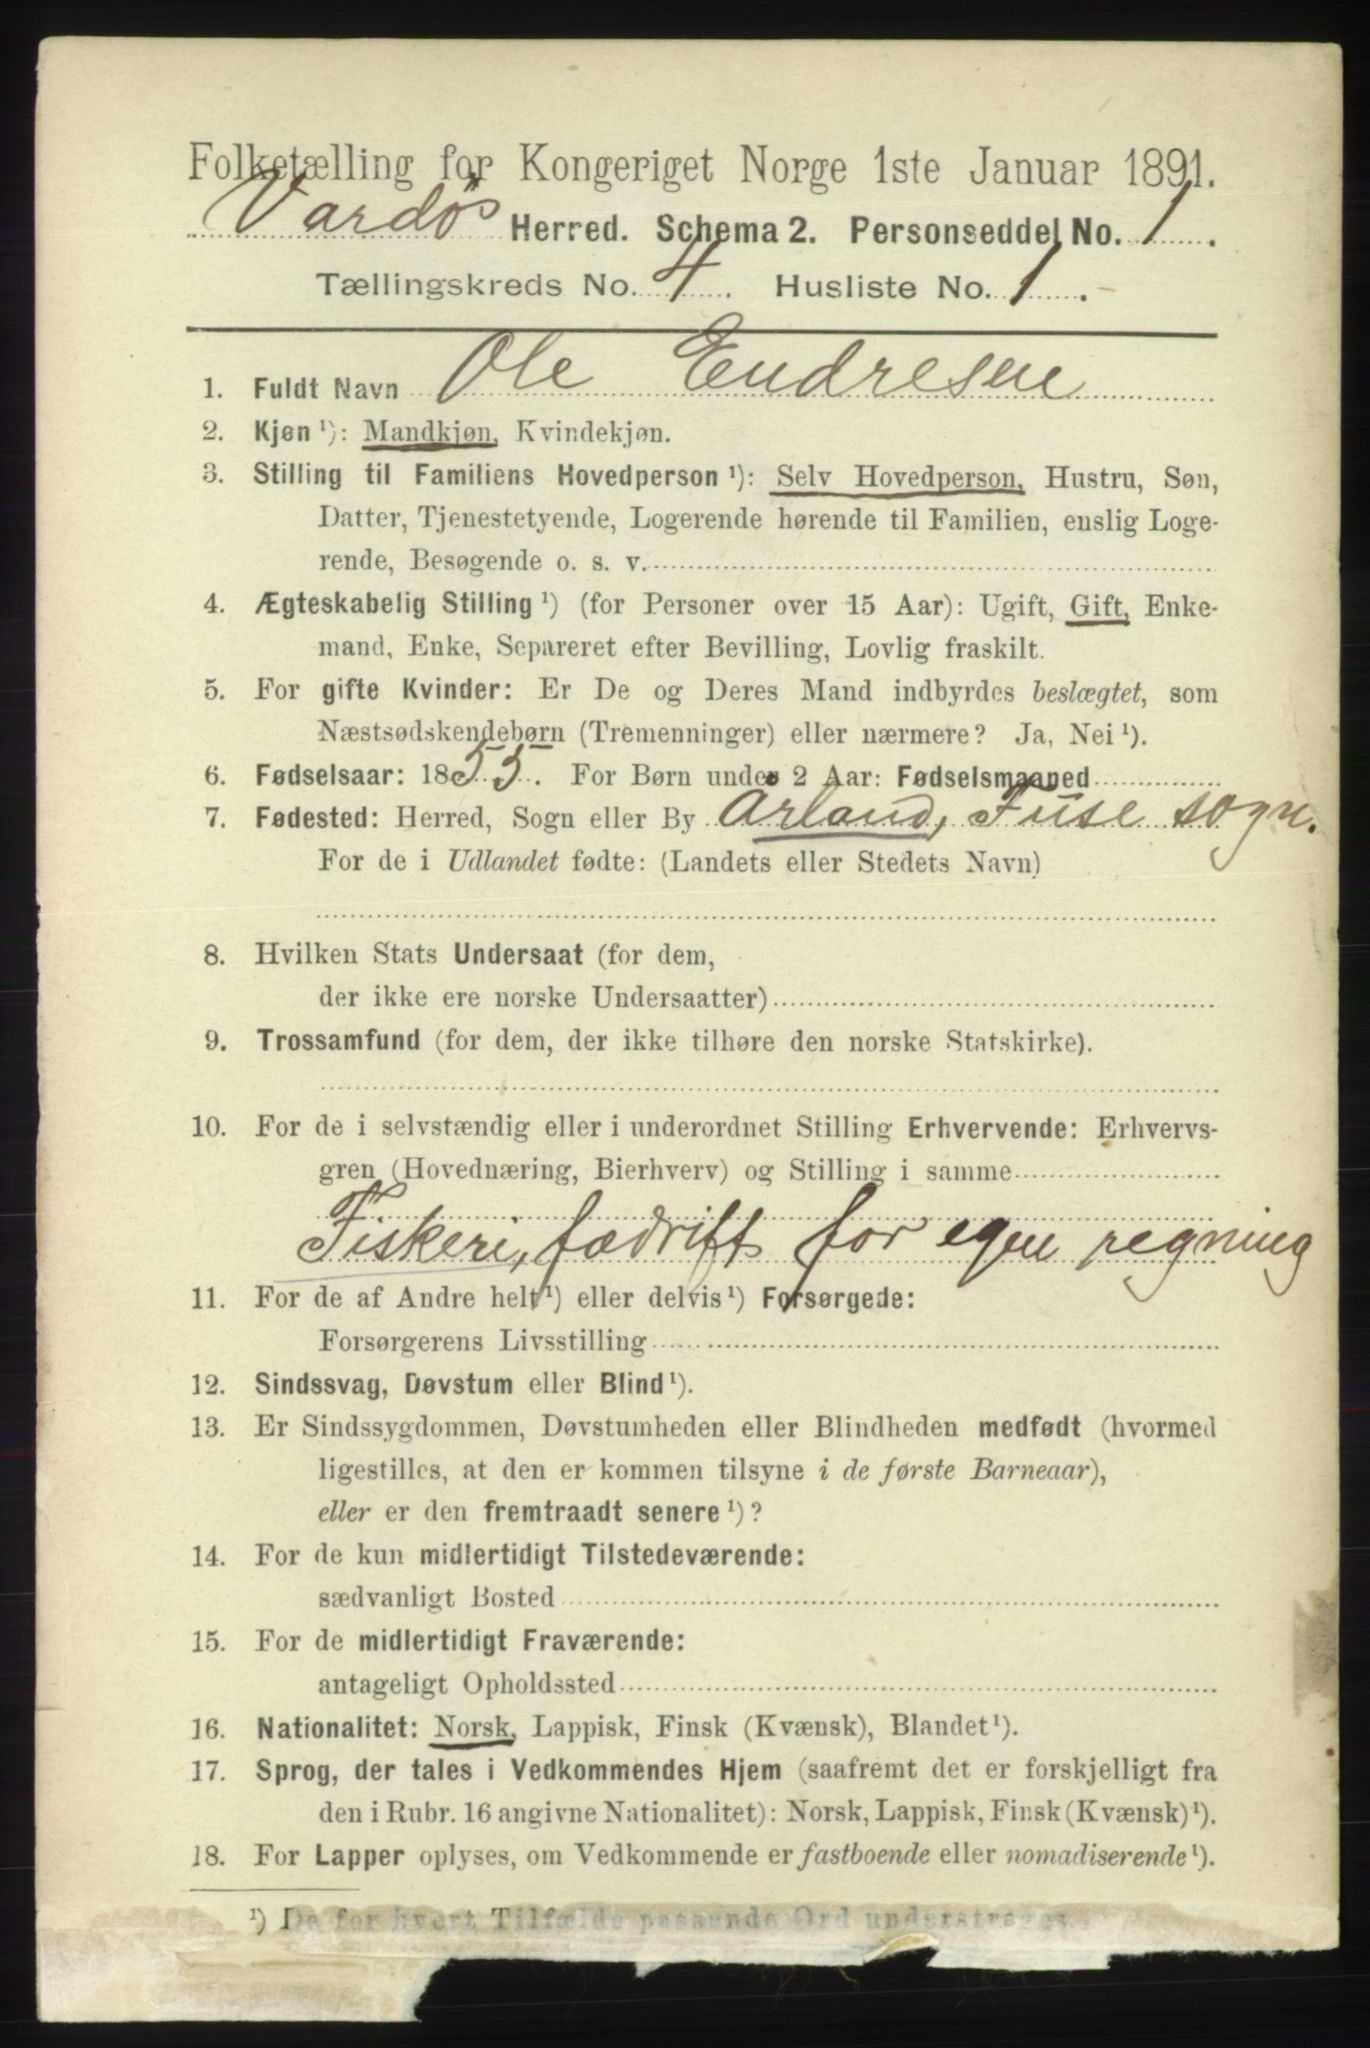 Folketælling for Kongeriget Norge 1ste Januar 1891.
Vardøs Herred. Schema 2. Personseddel No. 1.
Tællingskreds No. 4. Husliste No. 1.
1. Fuldt Navn Ole Endresen
2. Kjøn ¹): Mandkjøn, Kvindekjøn.
3. Stilling til Familiens Hovedperson ¹): Selv Hovedperson, Hustru, Søn,
Datter, Tjenestetyende, Logerende hørende til Familien, enslig Loge-
rende, Besøgende o. s. v.
4. Ægteskabelig Stilling ¹) (for Personer over 15 Aar): Ugift, Gift, Enke-
mand, Enke, Separeret efter Bevilling, Lovlig fraskilt.
5. For gifte Kvinder: Er De og Deres Mand indbyrdes beslægtet, som
Næstsødskendebørn (Tremenninger) eller nærmere? Ja, Nei ¹).
6. Fødselsaar: 1855. For Børn under 2 Aar: Fødselsmaaned
7. Fødested: Herred, Sogn eller By Arland, Fuse sogn.
For de i Udlandet fødte: (Landets eller Stedets Navn)
8. Hvilken Stats Undersaat (for dem,
der ikke ere norske Undersaatter)
9. Trossamfund (for dem, der ikke tilhøre den norske Statskirke).
10. For de i selvstændig eller i underordnet Stilling Erhvervende: Erhvervs-
gren (Hovednæring, Bierhverv) og Stilling i samme
Fiskeri, fædrift for egen regning
11. For de af Andre helt ¹) eller delvis ¹) Forsørgede:
Forsørgerens Livsstilling
12. Sindssvag, Døvstum eller Blind ¹).
13. Er Sindssygdommen, Døvstumheden eller Blindheden medfødt (hvormed
ligestilles, at den er kommen tilsyne i de første Barneaar),
eller er den fremtraadt senere ¹)?
14. For de kun midlertidigt Tilstedeværende:
sædvanligt Bosted
15. For de midlertidigt Fraværende:
antageligt Opholdssted
16. Nationalitet: Norsk, Lappisk, Finsk (Kvænsk), Blandet ¹).
17. Sprog, der tales i Vedkommendes Hjem (saafremt det er forskjelligt fra
den i Rubr. 16 angivne Nationalitet): Norsk, Lappisk, Finsk (Kvænsk) ¹).
18. For Lapper oplyses, om Vedkommende er fastboende eller nomadiserende ¹).
¹) De for hvert Tilfælde passende Ord understreges.